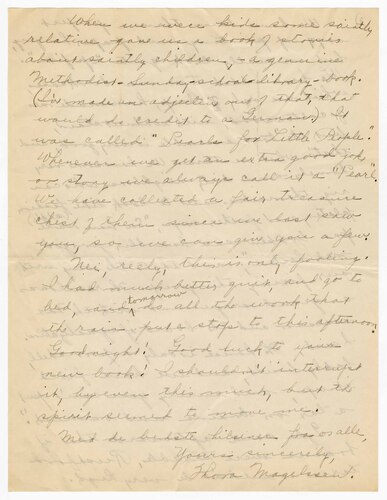 When we were kids some saintly
relative gave us a book of stories
about saintly children, - a genuine
Methodist-Sunday-school-library-book.
(I've made an adjective out of that, that
would do credit to a German.) It
was called "Pearls for Little People."
Whenever we get an extra good joke
or story we always call it a "Pearl."
We have collected a fair treasure
chest of them since we last saw
you, so we can give you a few.
Nei, reely, this is only fooling.
I had much better quit and go to
bed, and tomorrow do all the work that
the rain put a stop to this afternoon.
Goodnight! Good luck to your
new book! I shouldn't interrupt
it, by even this much, but the
spirit seemed to move me.
Med de bedste hilsner fra os alle,
Yours sincerely,
Thora Magelssen.